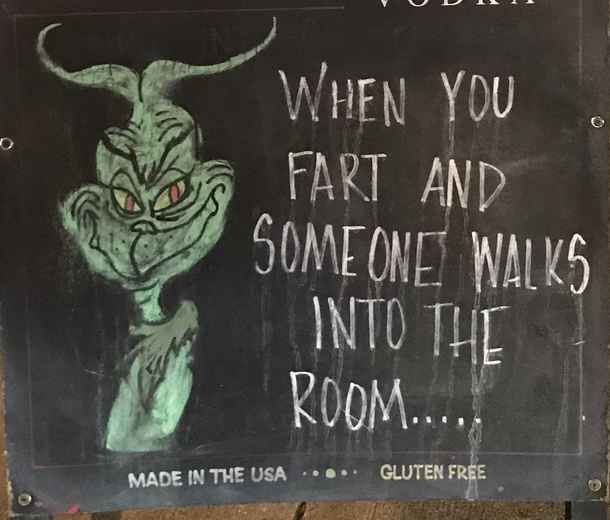 VODKA
WHEN YOU
FART AND
SOMEONE WALKS
INTO THE
ROOM.....
MADE IN THE USA ..•.. GLUTEN FREE